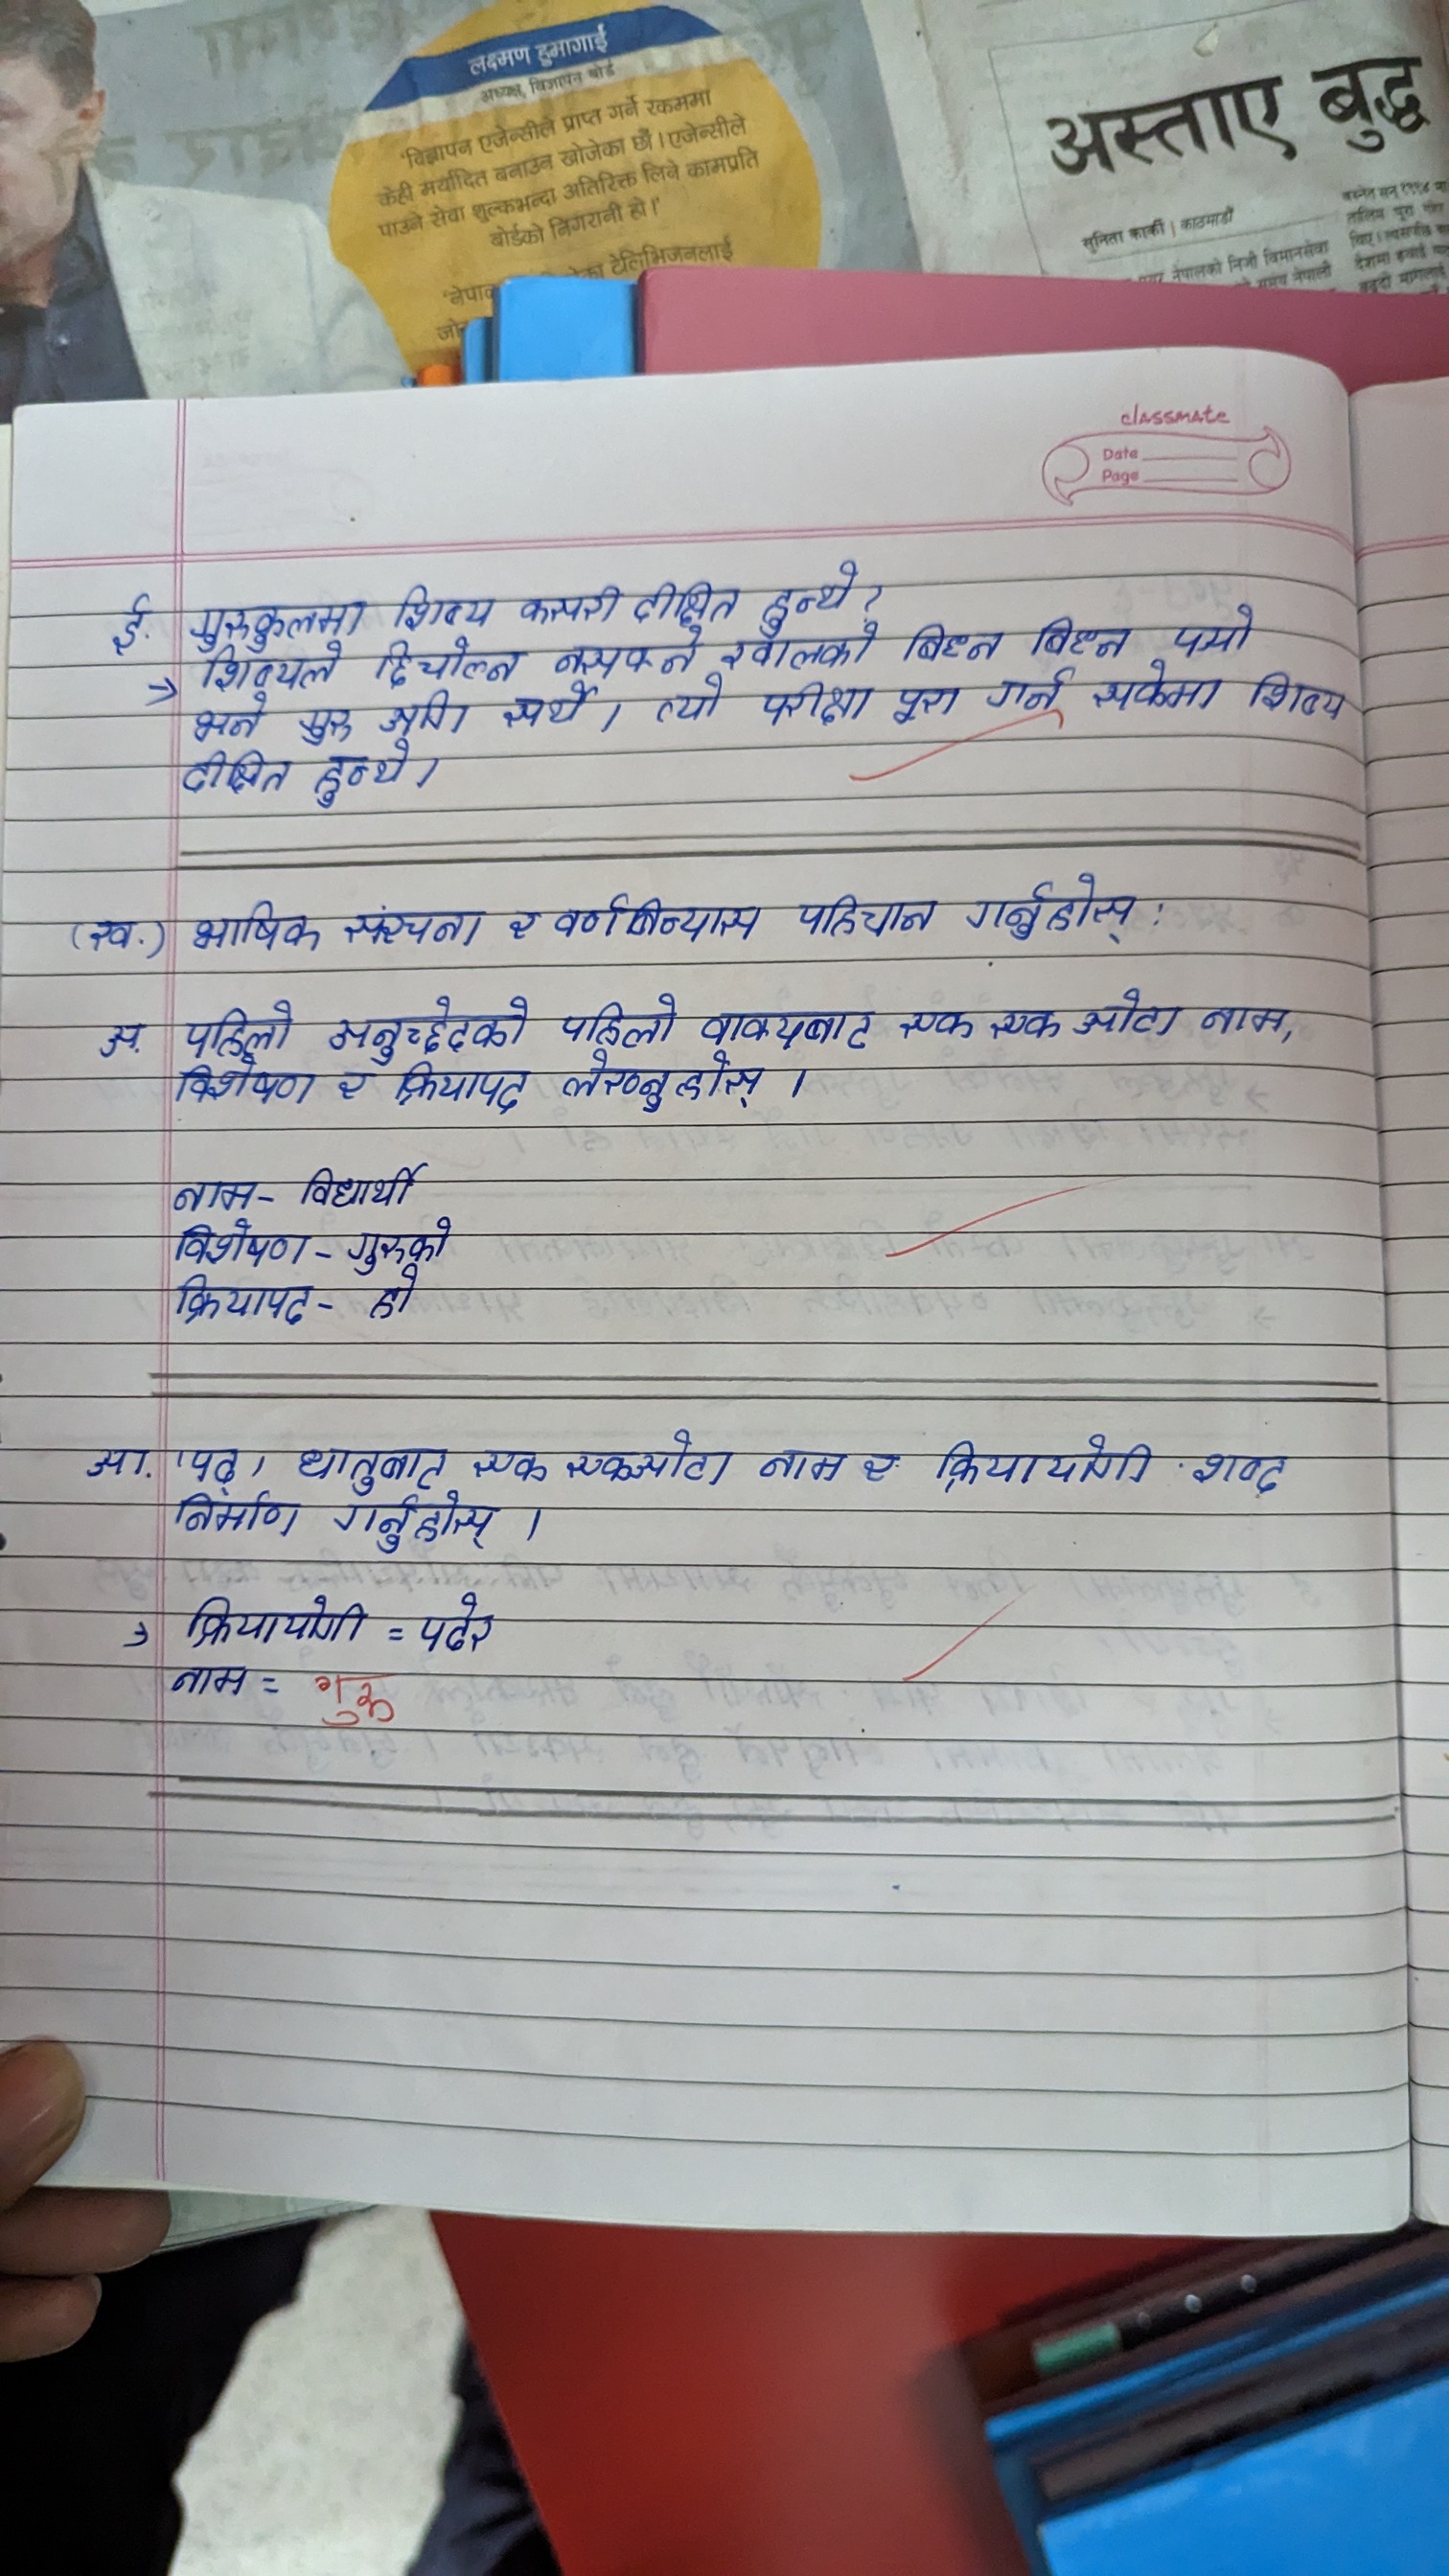 लक्ष्मण हुमागाई
अध्यक्ष, विज्ञापन बोर्ड
'विज्ञापन एजेन्सीले प्राप्त गर्ने रकममा
केही मर्यादित बनाउन खोजेका छौं । एजेन्सीले
पाउने सेवा शुल्कभन्दा अतिरिक्त लिने कामप्रति
बोर्डको निगरानी हो ।'
टेलिभिजनलाई
अस्ताए बुद्ध
सुनिता कार्की | काठमाडौं
नेपालको निजी विमानसेवा
नेपाली
classmate
Date
Page
ई. गुरुकुलमा शिष्य कसरी दीक्षित हुन्थे?
→ शिष्यले हिचोल्न नसक्ने खालको बिघ्न बिघ्न पर्‍यो
भने गुरु अघि सर्थे । त्यो परीक्षा पूरा गर्न सकेमा शिष्य
दीक्षित हुन्थे ।
(ख.) भाषिक संरचना र वर्णविन्यास पहिचान गर्नुहोस् :
अ. पहिलो अनुच्छेदको पहिलो वाक्यबाट एक एक ओटा नाम,
विशेषण र क्रियापद लेख्नुहोस् ।
नाम - विद्यार्थी
विशेषण - गुरुको
क्रियापद - हो
आ. 'पढ्' धातुबाट एक एकओटा नाम र क्रियायोगी शब्द
निर्माण गर्नुहोस् ।
→ क्रियायोगी = पढेर
नाम = गुरु